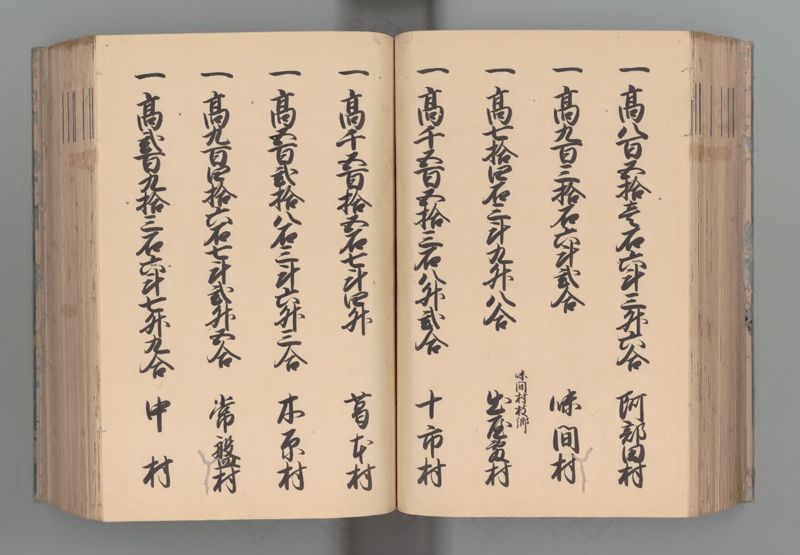 一 高八百五拾壱石六斗三升六合 阿部田村
一 高九百三拾石六斗弐合 味間村
味間村枝郷
一 高七拾四石三斗九升八合 出屋敷村
一 高千五百五拾三石八升弐合 十市村
一 高千五百拾五石七斗四升 葛本村
一 高五百弐拾八石三斗六升三合 木原村
一 高九百四拾六石七斗弐升五合 常盤村
一 高弐百九拾三石六斗七升九合 中村